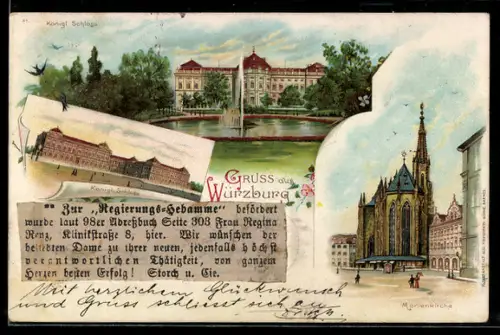 Königl. Schloss
Königl. Schloss
Gruss aus
Würzburg
Zur „Regierungs-Hebamme" befördert
wurde laut 98er Adreßbuch Seite 303 Frau Regina
Renz, Klinikstraße 8, hier. Wir wünschen der
beleibten Dame zu ihrer neuen, jedenfalls höchst
verantwortlichen Thätigkeit, von ganzem
Herzen besten Erfolg! Storch u. Cie.
Marienkirche
Mit herzlichem Glückwunsch
und Gruss schliesst sich an